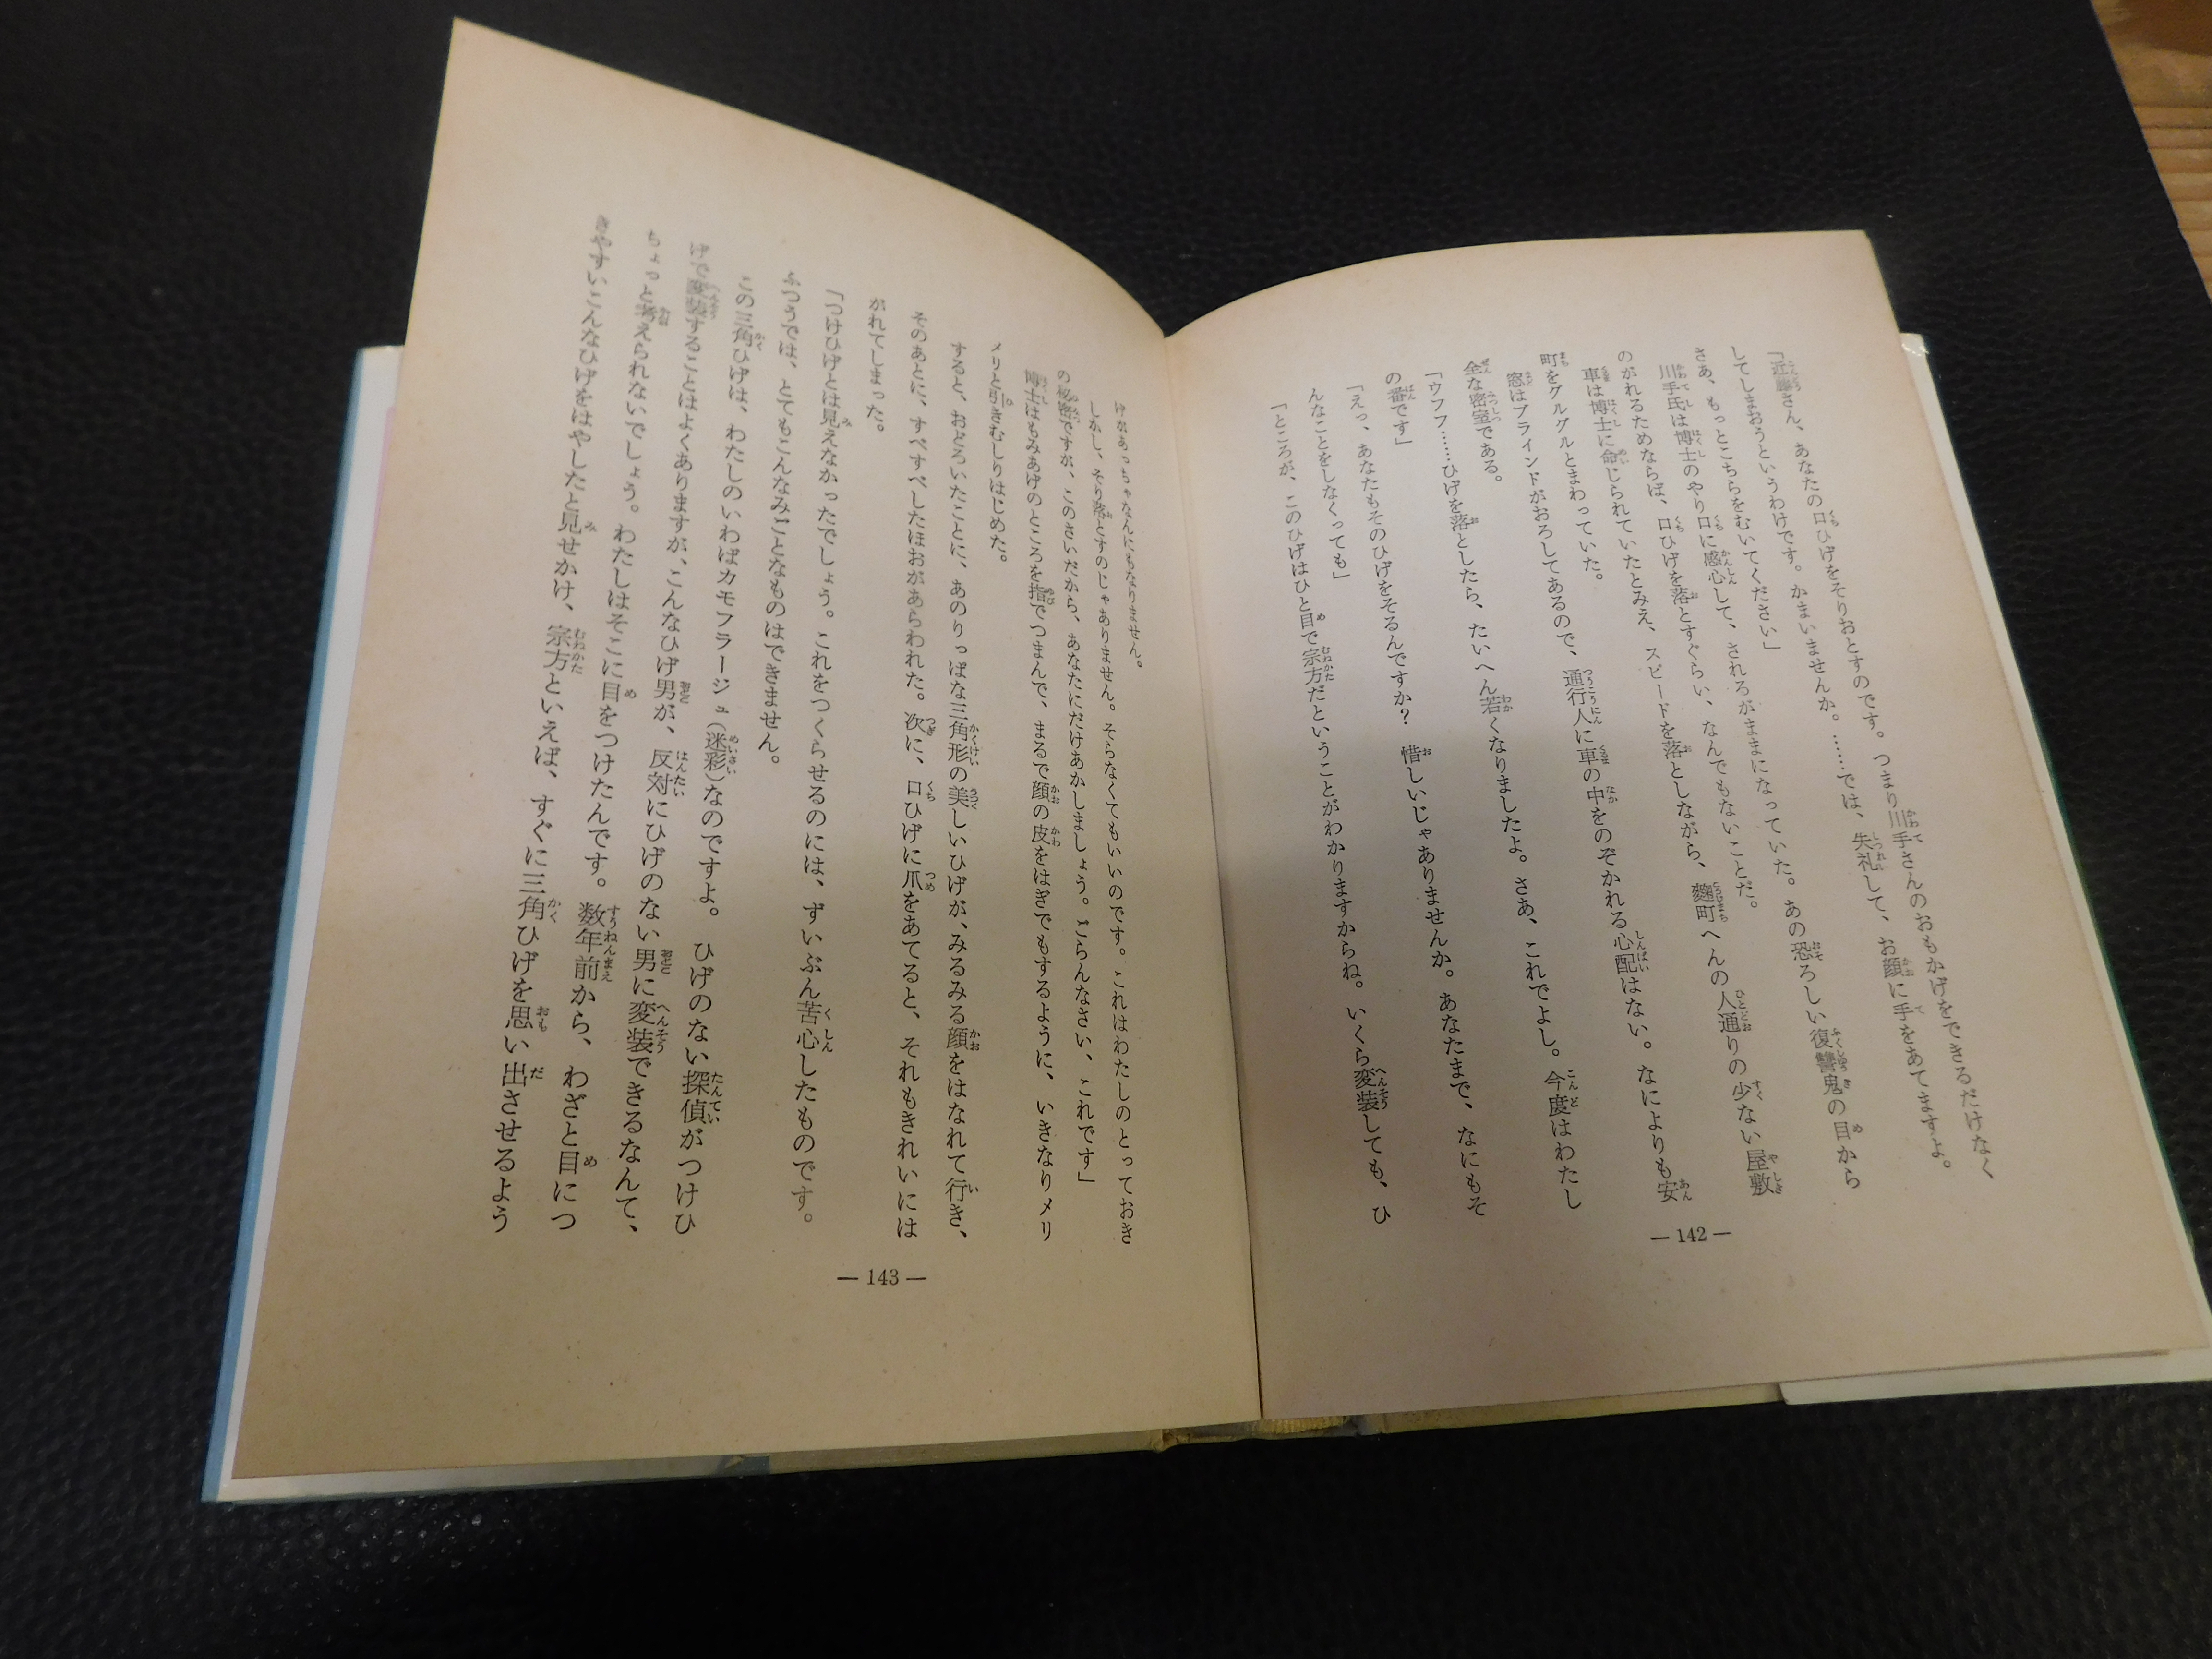 「近藤さん、あなたの口ひげをそりおとすのです。つまり川手さんのおもかげをできるだけなく
してしまおうというわけです。かまいませんか。……では、失礼して、お顔に手をあてますよ。
さあ、もっとこちらをむいてください」
川手氏は博士のやり口に感心して、されるがままになっていた。あの恐ろしい復讐鬼の目から
のがれるためならば、口ひげを落とすぐらい、なんでもないことだ。
車は博士に命じられていたとみえ、スピードを落としながら、麴町へんの人通りの少ない屋敷
町をグルグルとまわっていた。
窓はブラインドがおろしてあるので、通行人に車の中をのぞかれる心配はない。なによりも安
全な密室である。
「ウフフ……ひげを落としたら、たいへん若くなりましたよ。さあ、これでよし。今度はわたし
の番です」
「えっ、あなたもそのひげをそるんですか？ 惜しいじゃありませんか。あなたまで、なにもそ
んなことをしなくっても」
「ところが、このひげはひと目で宗方だということがわかりますからね。いくら変装しても、ひ
— 142 —
げがあっちゃなんにもなりません。
しかし、そり落とすのじゃありません。そらなくてもいいのです。これはわたしのとっておき
の秘密ですが、このさいだから、あなたにだけあかしましょう。ごらんなさい、これです」
博士はもみあげのところを指でつまんで、まるで顔の皮をはぎでもするように、いきなりメリ
メリと引きむしりはじめた。
すると、おどろいたことに、あのりっぱな三角形の美しいひげが、みるみる顔をはなれて行き、
そのあとに、すべすべしたほおがあらわれた。次に、口ひげに爪をあてると、それもきれいには
がれてしまった。
「つけひげとは見えなかったでしょう。これをつくらせるのには、ずいぶん苦心したものです。
ふつうでは、とてもこんなみごとなものはできません。
この三角ひげは、わたしのいわばカモフラージュ（迷彩）なのですよ。ひげのない探偵がつけひ
げで変装することはよくありますが、こんなひげ男が、反対にひげのない男に変装できるなんて、
ちょっと考えられないでしょう。わたしはそこに目をつけたんです。数年前から、わざと目につ
きやすいこんなひげをはやしたと見せかけ、宗方といえば、すぐに三角ひげを思い出させるよう
— 143 —